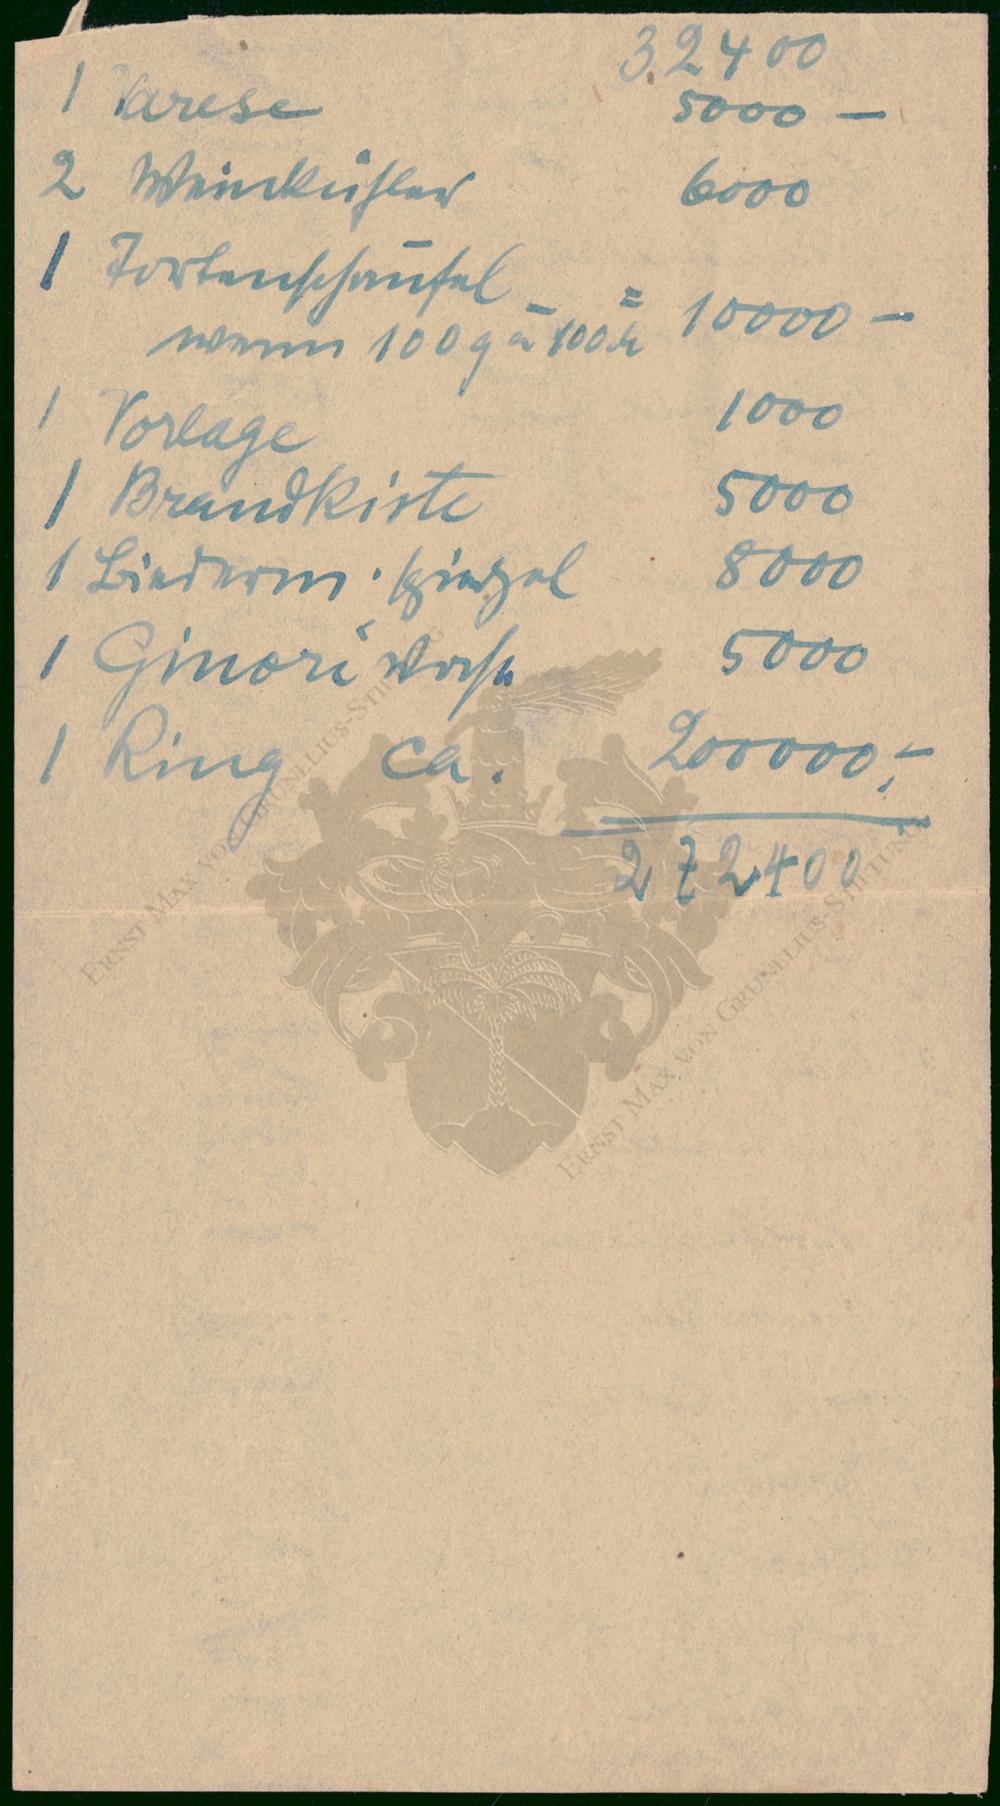 32400
1 Varese 5000 —
2 Weinkühler 6000
1 Tortenschaufel
wenn 100 g a 100 M = 10000 —
1 Vorlage 1000
1 Brandkiste 5000
1 Biederm. spiegel 8000
1 Ginori Vase 5000
1 Ring ca. 200000,–
272400
ERNST MAX VON GRUNELIUS-STIFTUNG
ERNST MAX VON GRUNELIUS-STIFTUNG